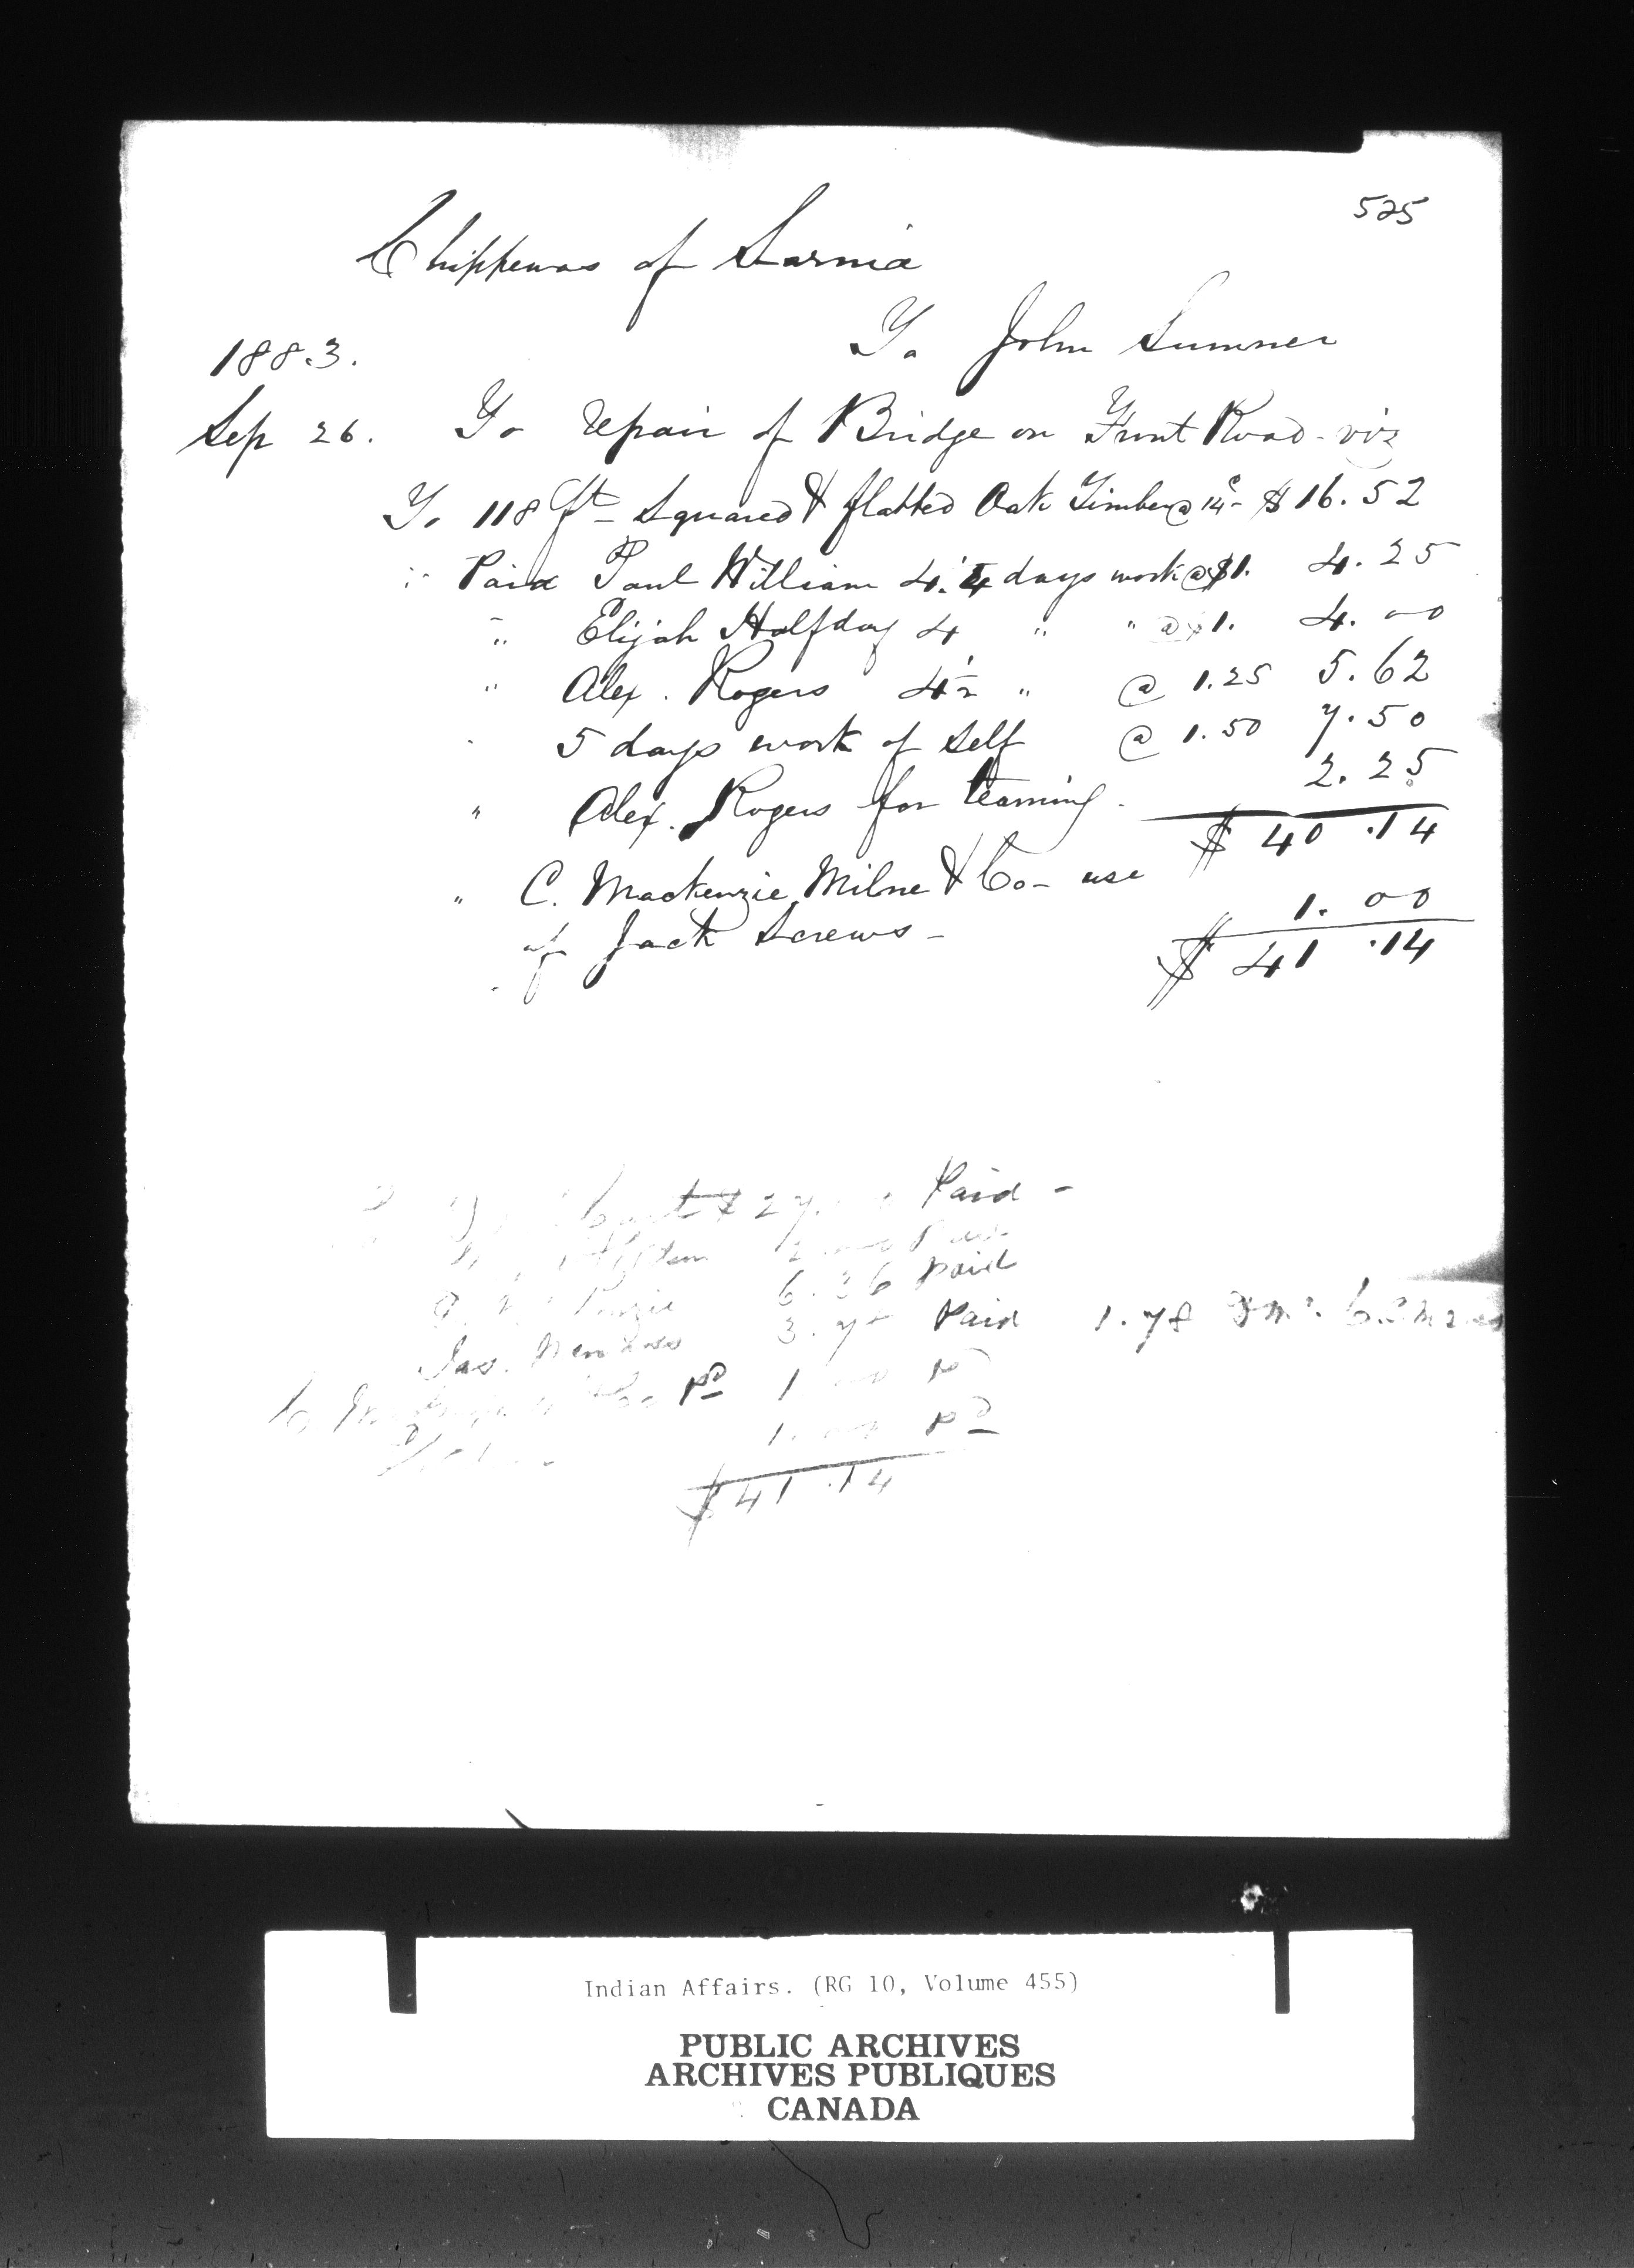 525
Chippewas of Sarnia
To John Sumner
1883.
Sep 26. To repair of Bridge on Front Road - viz
To 118 ft Squared & flatted Oak Timber @ 14c - $16.52
" Paid Paul William 4 1/4 days work @ $1. 4.25
" Elijah Halfday 4 " " @ $1. 4.00
" Alex. Rogers 4 1/2 " @ 1.25 5.62
5 days work of Self @ 1.50 7.50
" Alex. Rogers for teaming - 2.25
$40.14
" C. Mackenzie, Milne & Co - use
of Jack Screws - 1.00
$41.14
27. Paid -
6.36 Paid
Jas. 3. Paid 1.78
Pd 1.
1. Pd
$41.14
Indian Affairs. (RG 10, Volume 455)
PUBLIC ARCHIVES
ARCHIVES PUBLIQUES
CANADA